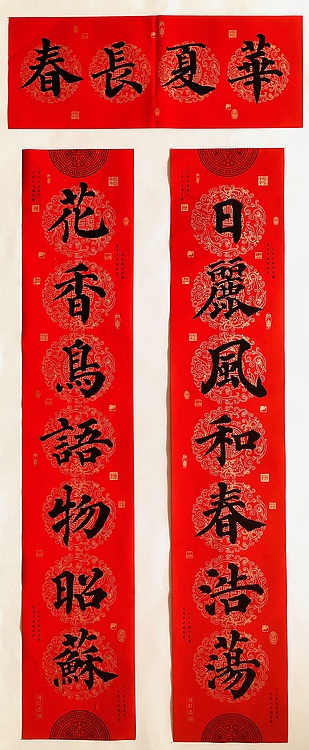 華夏長春
日麗風和春浩蕩
花香鳥語物昭蘇